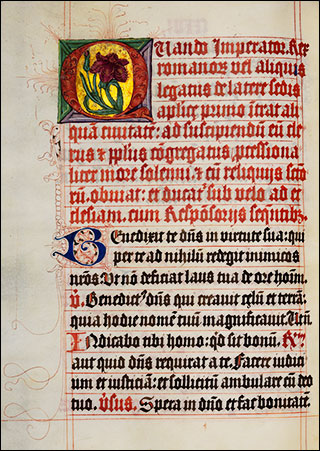 Quando Imperator. Rex
romanorum vel aliquis
legatus de latere sedis
aplice primo itrat ali
quā civitatē: ad suscipiendū eū cle
rus et pplus cōgregatus, pcessiona
liter more solenni, et cū reliquijs scto
rū, obviat: et ducatur sub velo ad ec
clesiam. cum Responsorijs sequētibus.
Benedixit te dn̄s in virtute sua: qui
per te ad nihilū redegit inimicos
nr̄os. Ut nō deficiat laus tua de ore homī.
V. Benedictus dn̄s qui creavit celū et terrā:
quia hodie nomē tuū magnificavit. Ut n.
Indicabo tibi homo: quid sit bonū. R.
aut quid dn̄s requirat a te. Facere iudici
um et iusticiā: et sollicitū ambulare cū deo
tuo. Vsus. Spera in dn̄o et fac bonitatē.